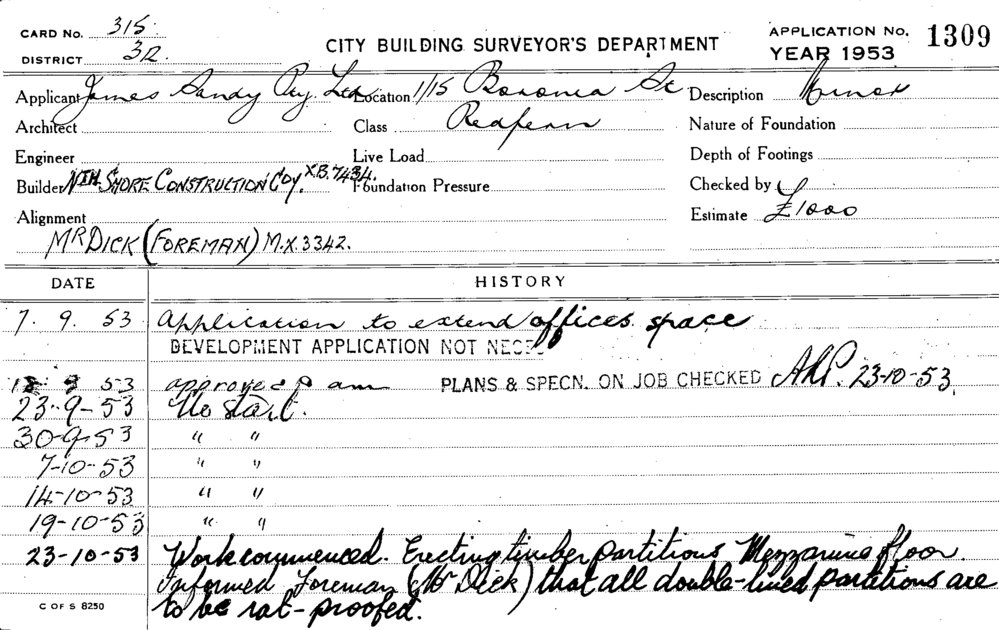 CARD No. 315.
DISTRICT 32
CITY BUILDING SURVEYOR'S DEPARTMENT
APPLICATION No. 1309
YEAR 1953
Applicant James Sandy Pty. Ltd Location 1/15 Boronia St Description Minor
Architect Class Redfern Nature of Foundation
Engineer Live Load Depth of Footings
Builder NTH. SHORE CONSTRUCTION COY. XB.7434. Foundation Pressure Checked by
Alignment Estimate £1000
MR DICK (FOREMAN) M.X.3342.
DATE HISTORY
7. 9. 53 Application to extend offices space
DEVELOPMENT APPLICATION NOT
53 approved PLANS & SPECN. ON JOB CHECKED 23-10-53.
23-9-53 No start.
30-9-53 " "
7-10-53 " "
14-10-53 " "
19-10-53 " "
23-10-53 Work commenced. Erecting timber partitions Mezzanine floor.
Informed Foreman (Mr Dick) that all double-lined partitions are
to be rat-proofed.
C OF S 8250